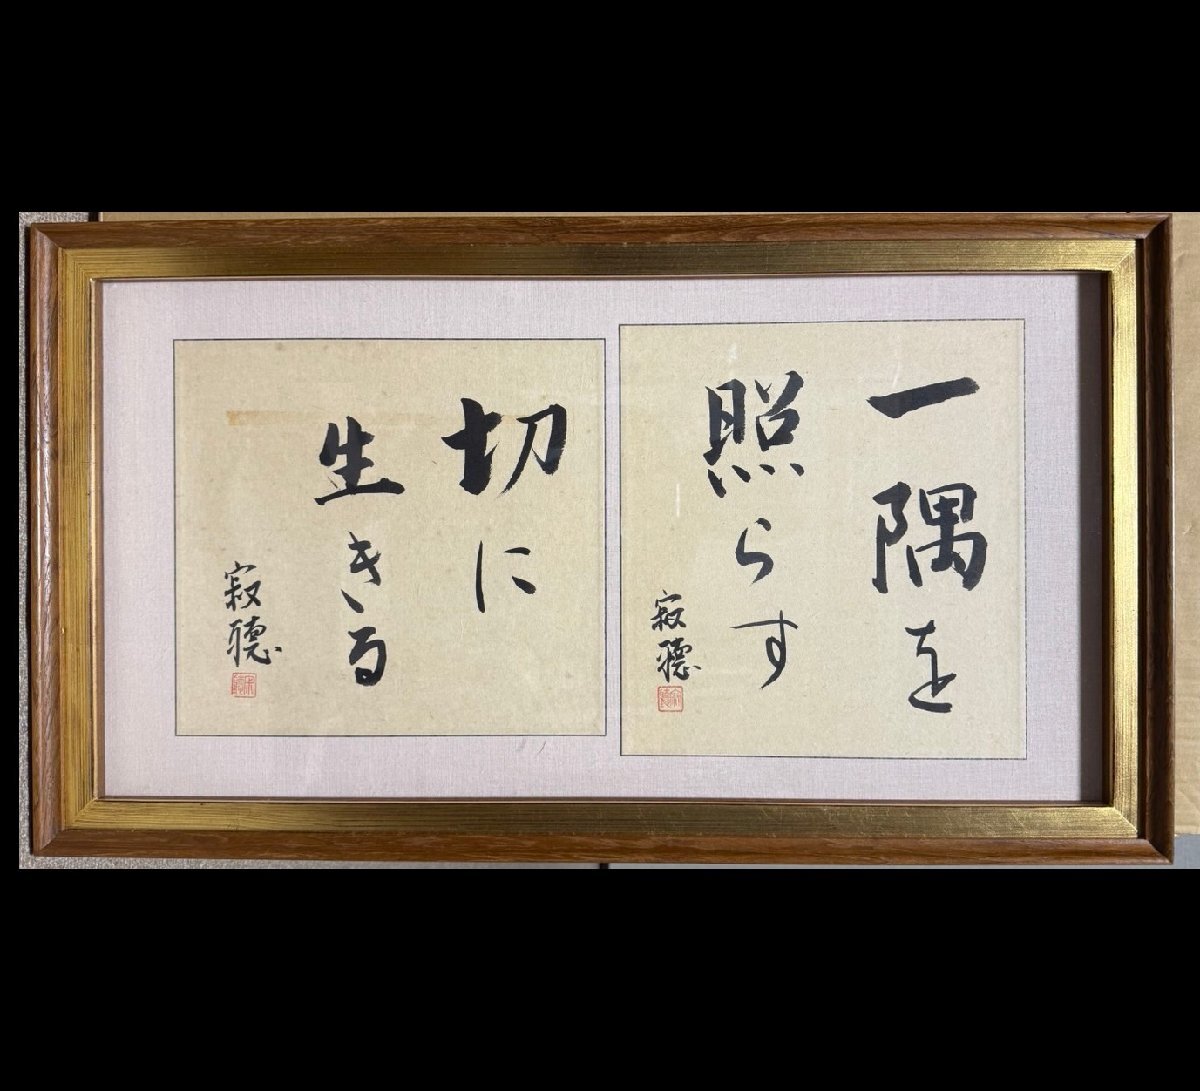 一隅を
照らす
寂聴
切に
生きる
寂聴